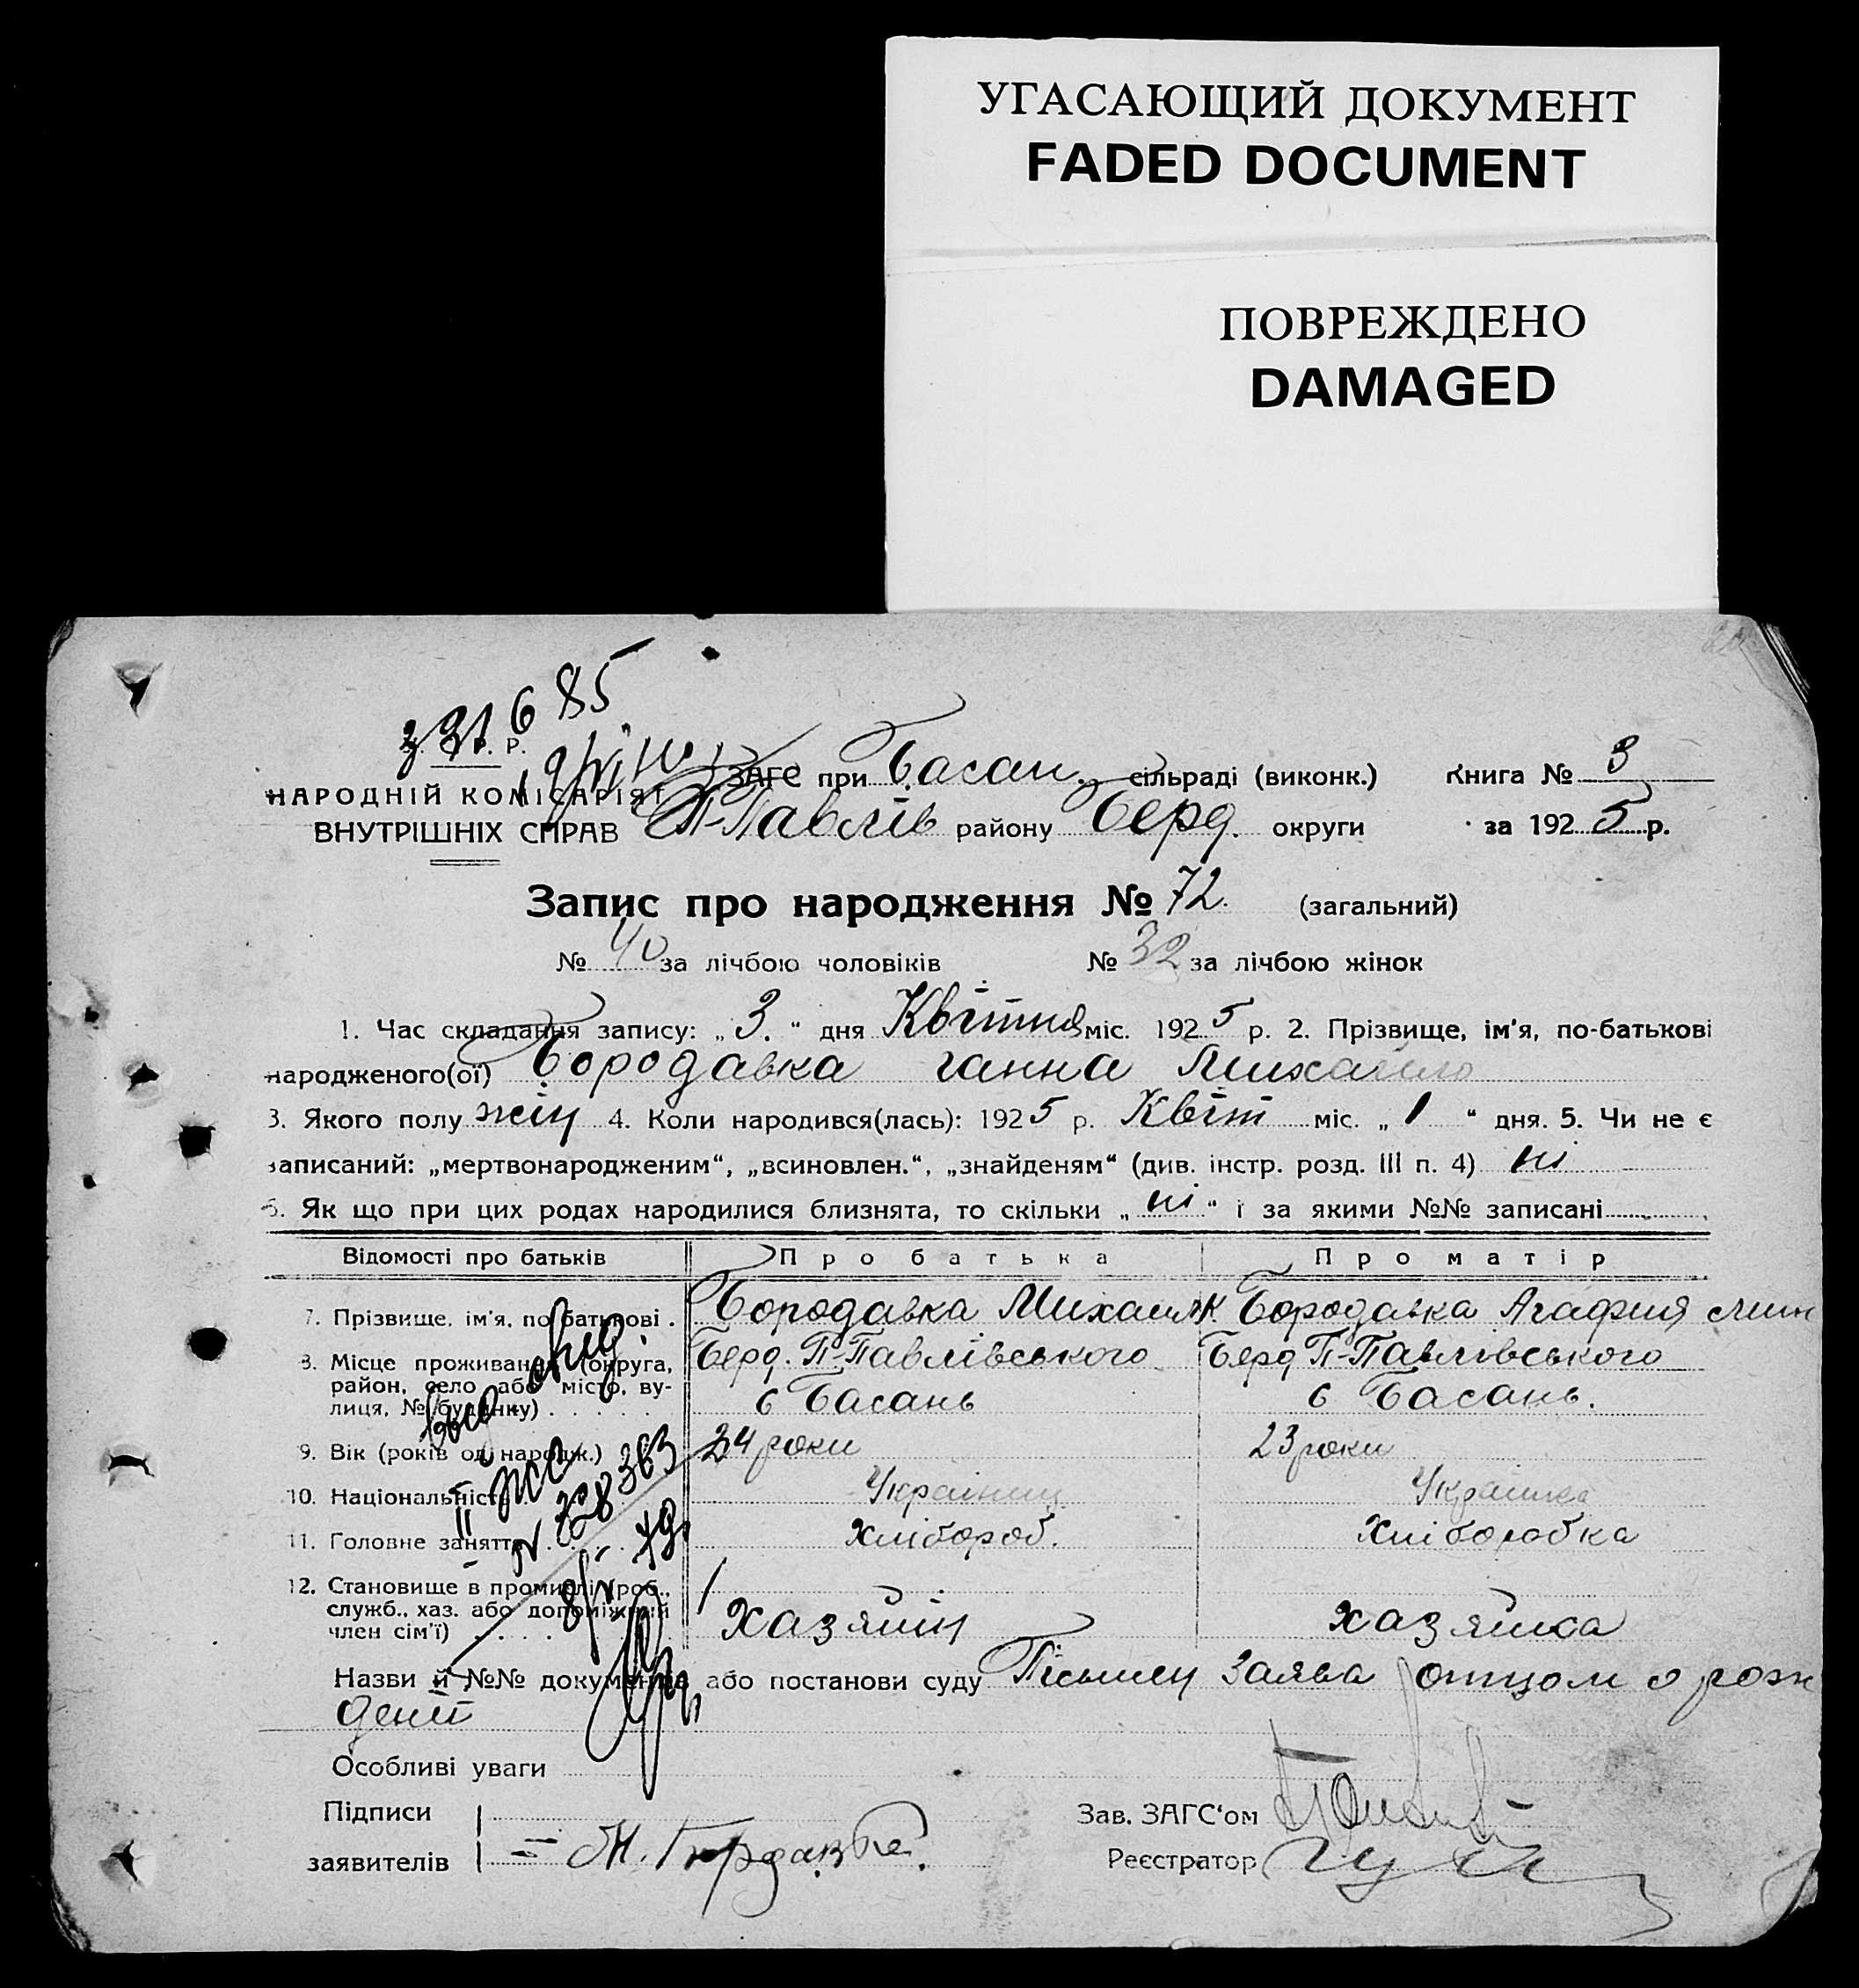 УГАСАЮЩИЙ ДОКУМЕНТ
FADED DOCUMENT
ПОВРЕЖДЕНО
DAMAGED
331685
Р. Р.
ЗАГС при Басан. сільраді (виконк.) Книга № 3
НАРОДНІЙ КОМІСАРІЯТ
ВНУТРІШНІХ СПРАВ П-Павлів району Берд. округи за 1925 р.
Запис про народження № 72. (загальний)
№ 40 за лічбою чоловіків № 32 за лічбою жінок
1. Час складання запису: „3.“ дня Квітня міс. 1925 р. 2. Прізвище, ім'я, по-батькові
народженого(ої) Бородавка Ганна Михайло
3. Якого полу жін 4. Коли народився(лась): 1925 р. Квіт міс. „1“ дня. 5. Чи не є
записаний: „мертвонародженим“, „всиновлен.“, „знайденям“ (див. інстр. розд. III п. 4) ні
6. Як що при цих родах народилися близнята, то скільки „ні“ і за якими №№ записані
Відомості про батьків Про батька Про матір
7. Прізвище, ім'я, по батькові . Бородавка Михаил К. Бородавка Агафия
8. Місце проживання (округа, Берд. П-Павлівського Берд П-Павлівського
район, село або місто, ву-
лиця, № будинку) . . . . . . с Басань с Басань.
9. Вік (років од народж.) 24 роки 23 роки
10. Національність . Українец Українка
11. Головне заняття . . . . Хлібороб. Хліборобка
12. Становище в промислі (роб.,
служб., хаз. або допоміжний
член сім'ї) . . . . Хазяїн хазяйка
№ 728363
Назви й №№ документів або постанови суду Письмен Заява отцом о рож
дениї
Особливі уваги
Підписи
Зав. ЗАГС'ом
заявителів М. Бордавка.
Реєстратор